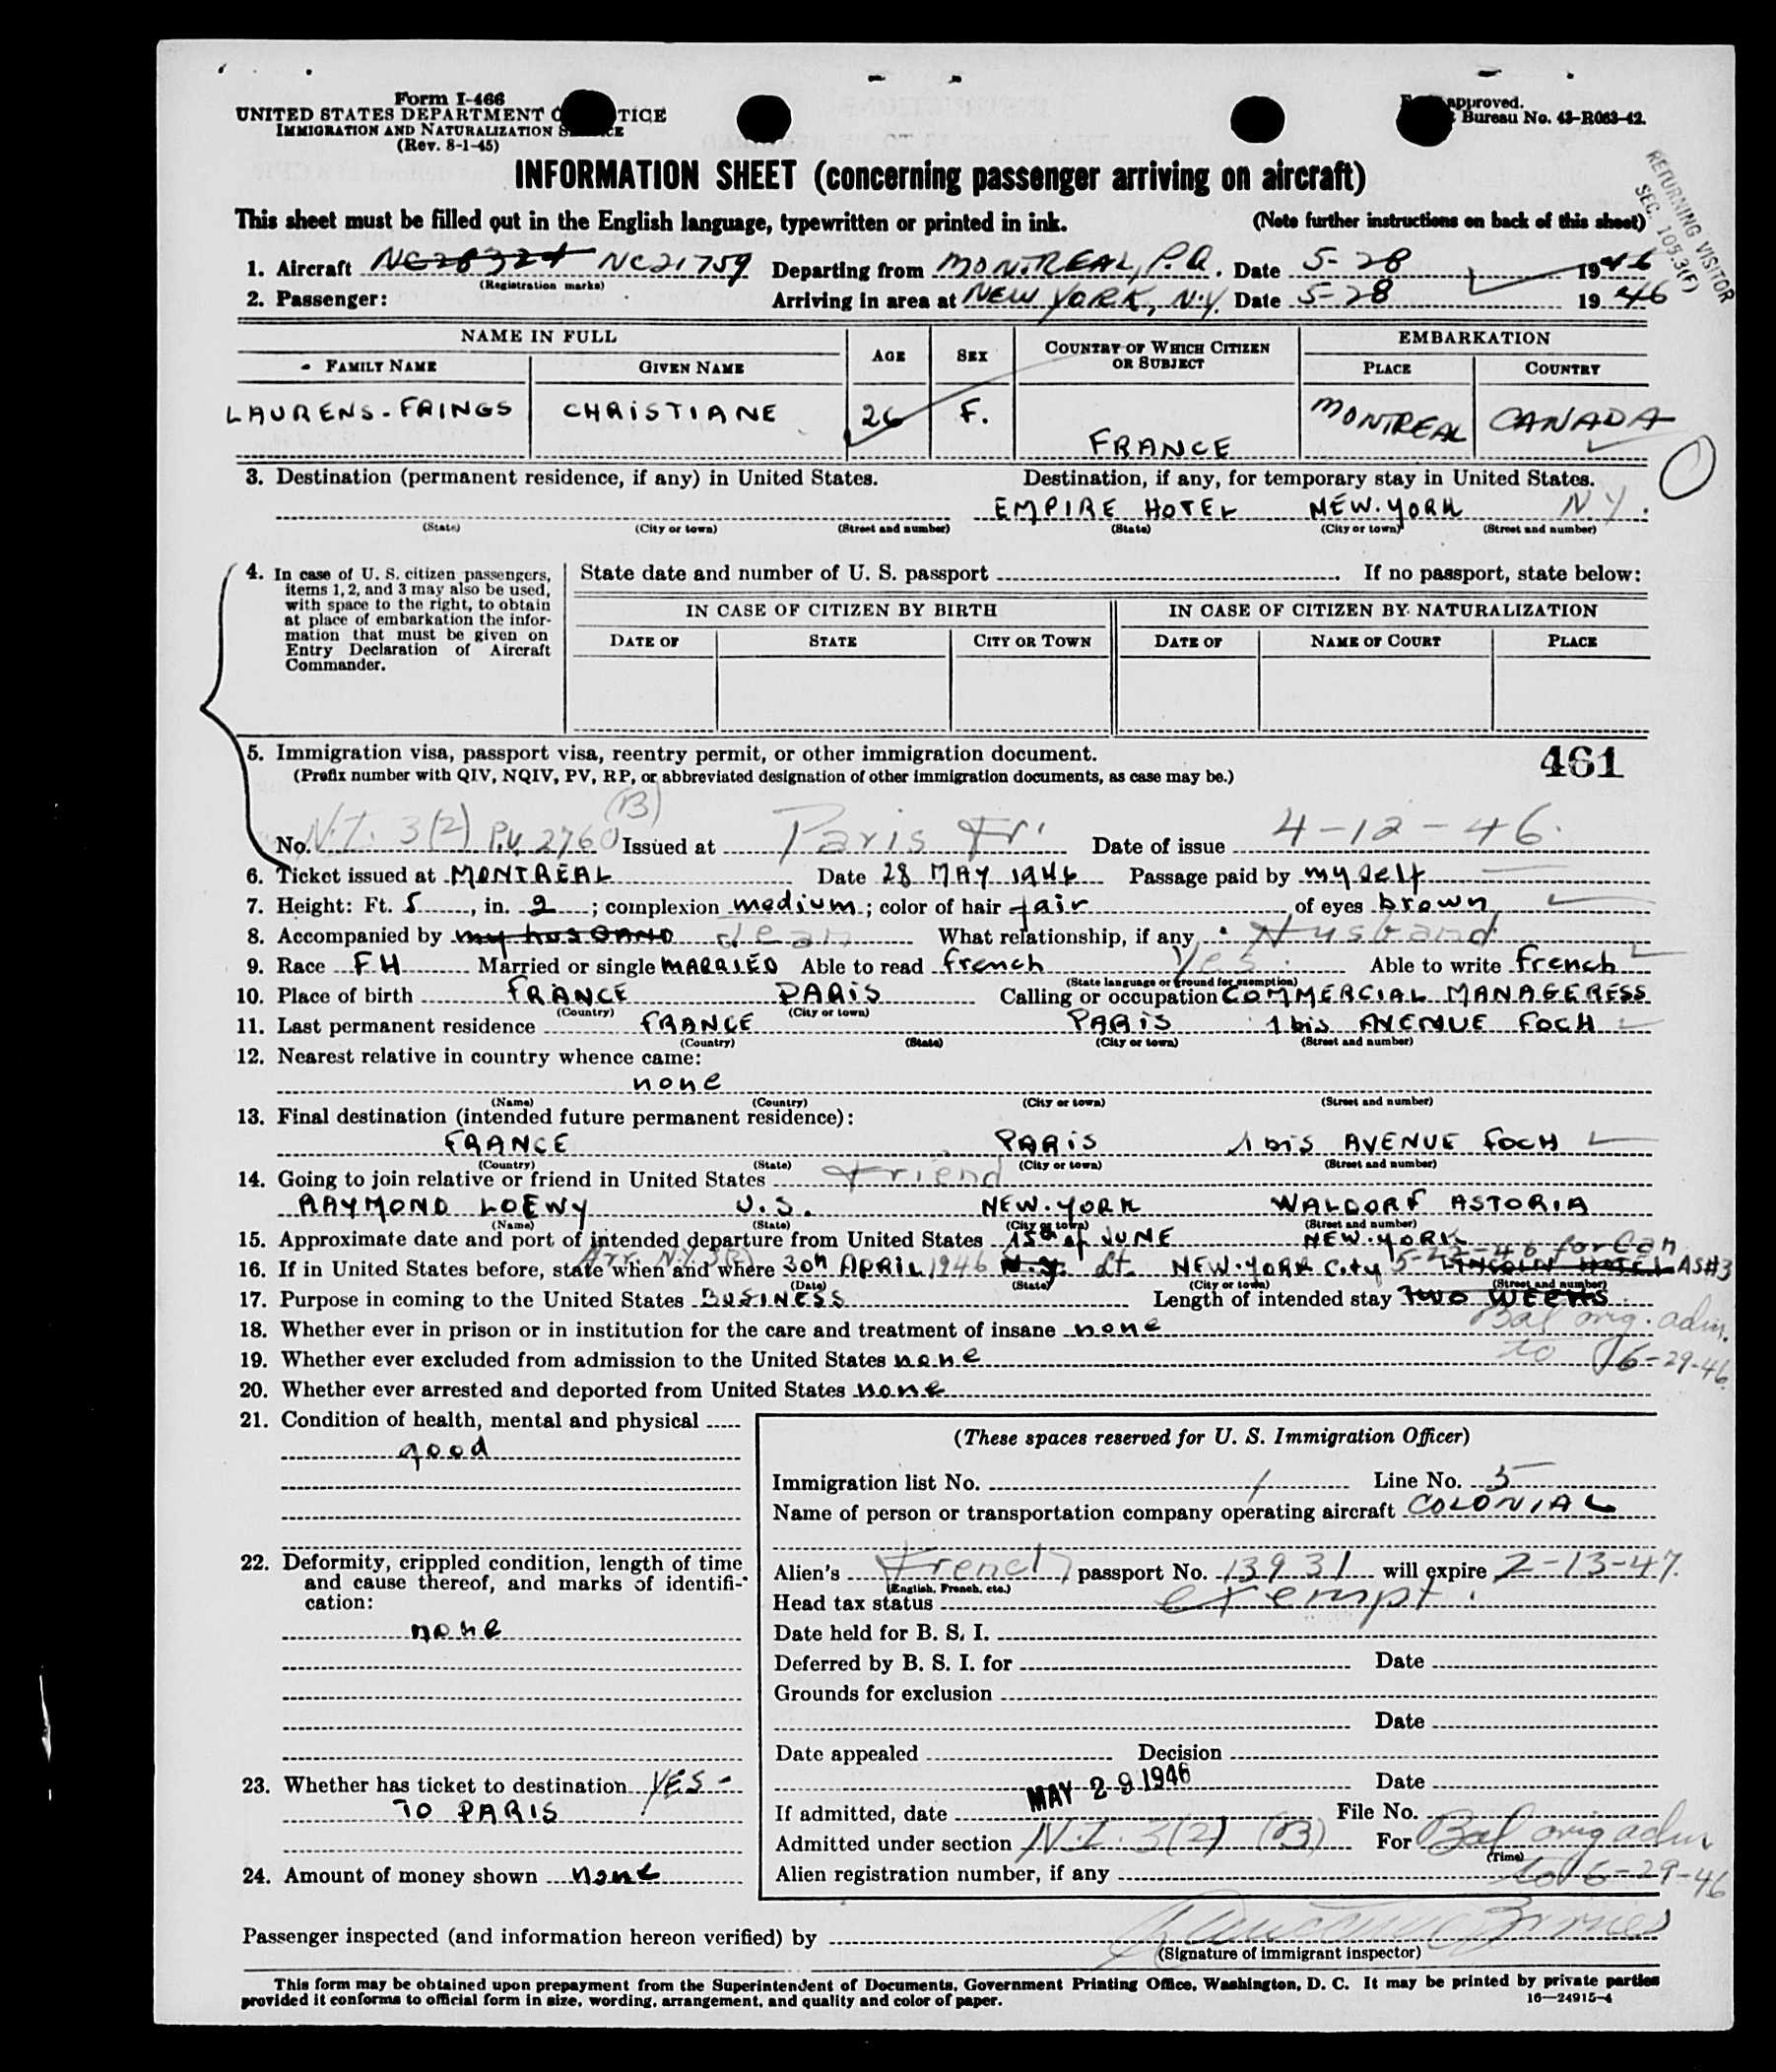 Form I-466
UNITED STATES DEPARTMENT O TICE
IMMIGRATION AND NATURALIZATION S CE
(Rev. 8-1-45)
approved.
Bureau No. 43-R063-42.
INFORMATION SHEET (concerning passenger arriving on aircraft)
RETURNING VISITOR
SEC. 105.3(F)
This sheet must be filled out in the English language, typewritten or printed in ink. (Note further instructions on back of this sheet)
1. Aircraft NC28324 NC21759 Departing from MONTREAL, P.Q. Date 5-28 1946
(Registration marks)
2. Passenger: Arriving in area at NEW YORK, N.Y. Date 5-28 1946
NAME IN FULL AGE SEX COUNTRY OF WHICH CITIZEN OR SUBJECT EMBARKATION
FAMILY NAME GIVEN NAME PLACE COUNTRY
LAURENS-FRINGS CHRISTIANE 26 F. FRANCE MONTREAL CANADA
3. Destination (permanent residence, if any) in United States. Destination, if any, for temporary stay in United States.
EMPIRE HOTEL NEW.YORK N.Y.
(State) (City or town) (Street and number) (State) (City or town) (Street and number)
4. In case of U. S. citizen passengers, items 1, 2, and 3 may also be used, with space to the right, to obtain at place of embarkation the information that must be given on Entry Declaration of Aircraft Commander.
State date and number of U. S. passport . If no passport, state below:
IN CASE OF CITIZEN BY BIRTH IN CASE OF CITIZEN BY NATURALIZATION
DATE OF STATE CITY OR TOWN DATE OF NAME OF COURT PLACE
5. Immigration visa, passport visa, reentry permit, or other immigration document. 461
(Prefix number with QIV, NQIV, PV, RP, or abbreviated designation of other immigration documents, as case may be.)
(B)
No. N.I. 3(2) P.V. 2760 Issued at Paris Fr. Date of issue 4-12-46.
6. Ticket issued at MONTREAL Date 28 MAY 1946 Passage paid by myself
7. Height: Ft. 5, in. 2; complexion medium; color of hair fair, of eyes brown
8. Accompanied by my husband Jean What relationship, if any Husband
9. Race FH Married or single MARRIED Able to read french Yes. Able to write french
(State language or ground for exemption)
10. Place of birth FRANCE PARIS Calling or occupation COMMERCIAL MANAGERESS
(Country) (City or town)
11. Last permanent residence FRANCE PARIS 1 bis AVENUE FOCH
(Country) (State) (City or town) (Street and number)
12. Nearest relative in country whence came:
none
(Name) (Country) (City or town) (Street and number)
13. Final destination (intended future permanent residence):
FRANCE PARIS 1 bis AVENUE FOCH
(Country) (State) (City or town) (Street and number)
14. Going to join relative or friend in United States Friend
RAYMOND LOEWY U.S. NEW.YORK WALDORF ASTORIA
(Name) (State) (City or town) (Street and number)
15. Approximate date and port of intended departure from United States 15th of JUNE NEW.YORK
Arr. N.Y. 3(2) 5-22-46 for Can
16. If in United States before, state when and where 30th APRIL 1946 N.Y. NEW.YORK City LINCOLN HOTEL AS#3
(Date) (State) (City or town) (Street and number)
17. Purpose in coming to the United States BUSINESS Length of intended stay TWO WEEKS.
18. Whether ever in prison or in institution for the care and treatment of insane none Bal orig. adm.
19. Whether ever excluded from admission to the United States none to 6-29-46
20. Whether ever arrested and deported from United States none
21. Condition of health, mental and physical
good
22. Deformity, crippled condition, length of time and cause thereof, and marks of identification:
none
23. Whether has ticket to destination YES-
TO PARIS
24. Amount of money shown none
(These spaces reserved for U. S. Immigration Officer)
Immigration list No. 1 Line No. 5
Name of person or transportation company operating aircraft COLONIAL
Alien's French passport No. 13931 will expire 2-13-47.
(English, French, etc.)
Head tax status exempt.
Date held for B. S. I.
Deferred by B. S. I. for Date
Grounds for exclusion
Date
Date appealed Decision
Date
MAY 29 1946
If admitted, date File No.
Admitted under section N.I. 3(2) (B) For Bal orig adm
(Time)
Alien registration number, if any to 6-29-46
Passenger inspected (and information hereon verified) by
(Signature of immigrant inspector)
This form may be obtained upon prepayment from the Superintendent of Documents, Government Printing Office, Washington, D. C. It may be printed by private parties
provided it conforms to official form in size, wording, arrangement, and quality and color of paper. 16—24915-4